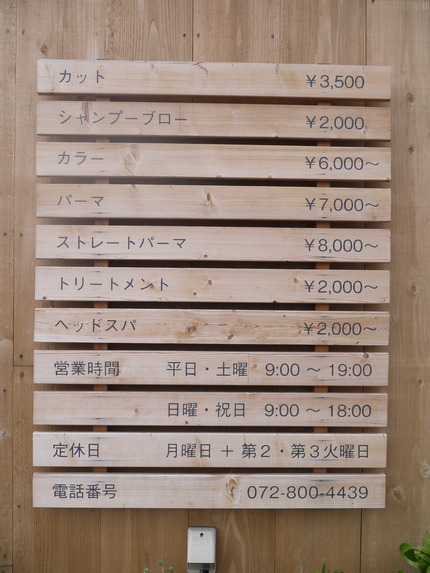 カット ￥3,500
シャンプーブロー ￥2,000
カラー ￥6,000～
パーマ ￥7,000～
ストレートパーマ ￥8,000～
トリートメント ￥2,000～
ヘッドスパ ￥2,000～
営業時間 平日・土曜 9:00 ～ 19:00
日曜・祝日 9:00 ～ 18:00
定休日 月曜日 ＋ 第２・第３火曜日
電話番号 072-800-4439